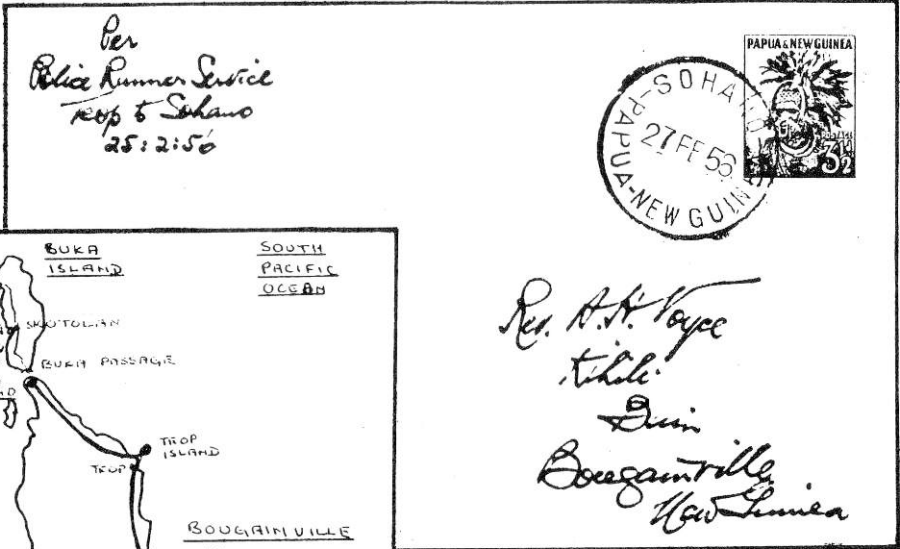 Per
Police Runner Service
Teop to Sohano
25:2:56
PAPUA & NEW GUINEA
3½
SOHANO
27 FE 56
PAPUA-NEW GUINEA
BUKA
ISLAND
SOUTH
PACIFIC
OCEAN
SKOTOLAN
BUKA PASSAGE
TEOP
ISLAND
TEOP
BOUGAINVILLE
Rev. A.H. Voyce
Kihili
Buin
Bougainville
New Guinea